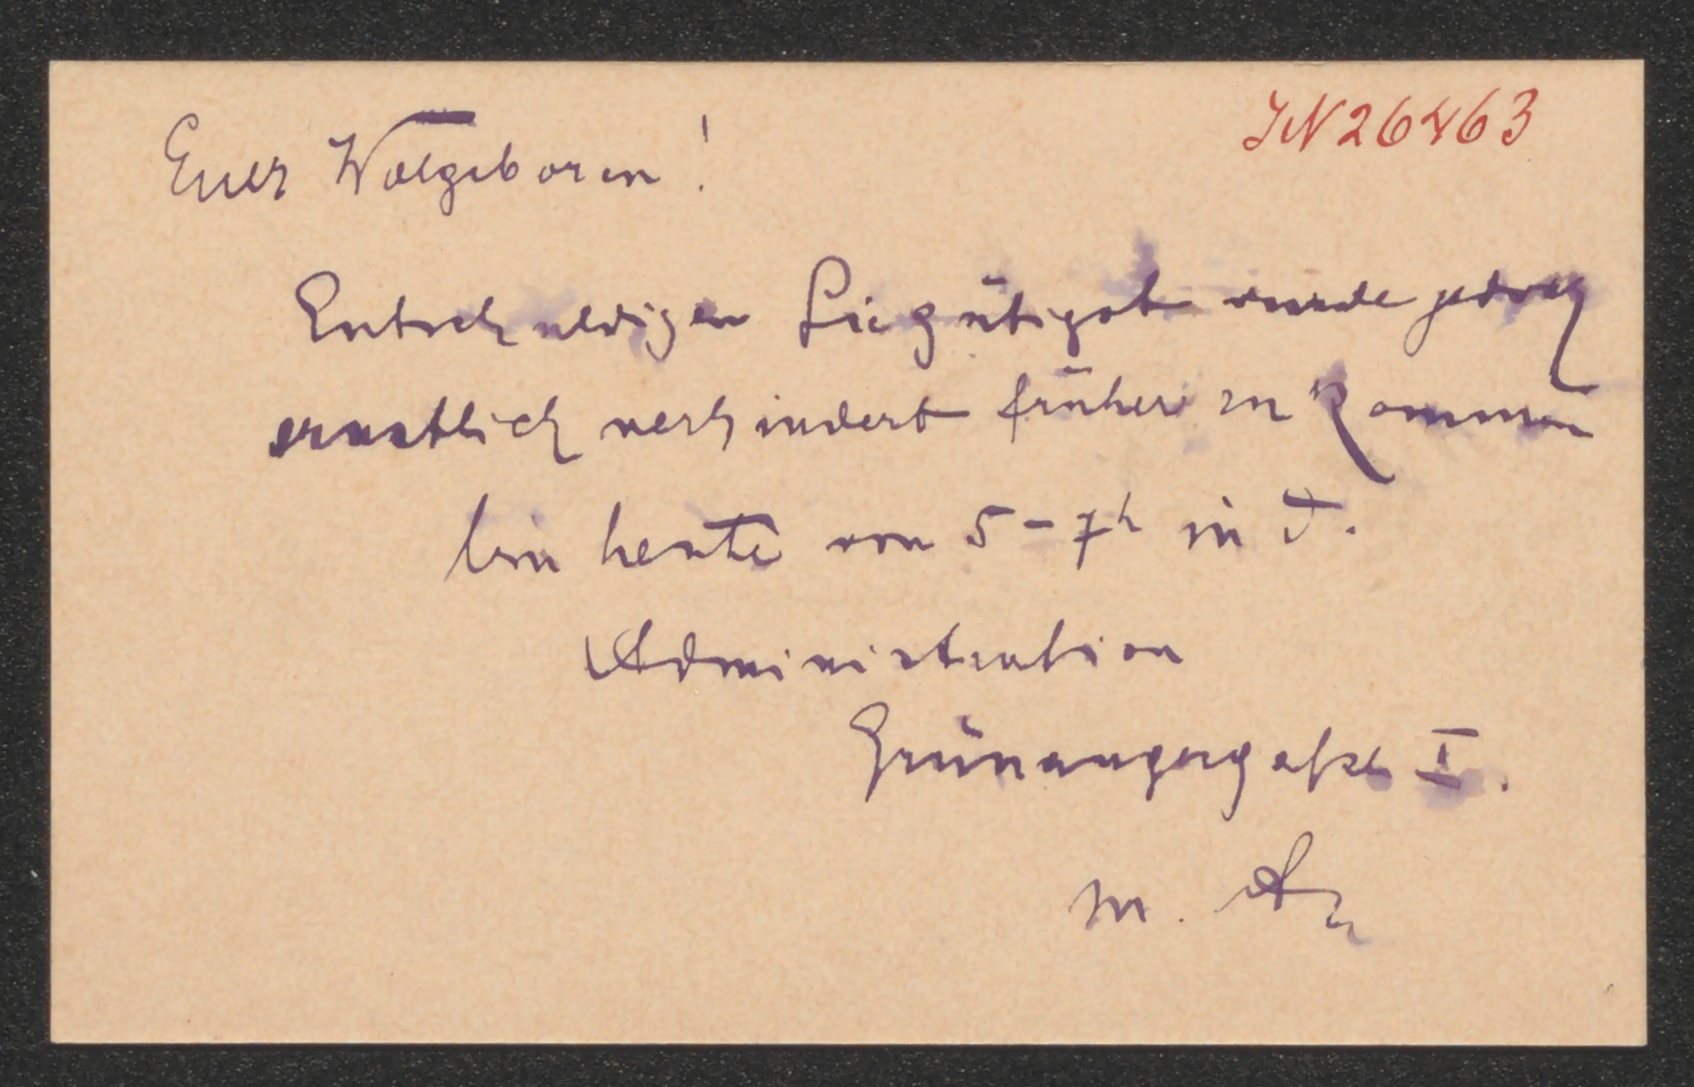 IN 26463
Euer Wolgeboren!
Entschuldigen Sie gütigst wurde jedoch
ernstlich verhindert früher zu kommen
bin heute von 5-7h in d.
Administration
Grünangergasse I.
M.